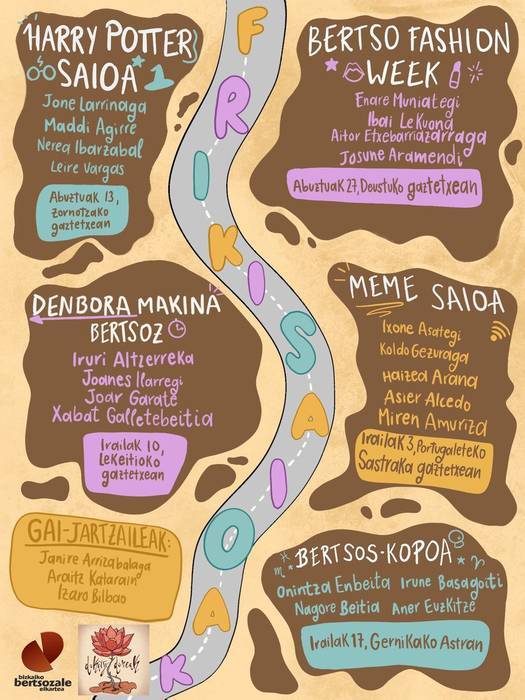 FRIKI SAIOAK
HARRY POTTER
SAIOA
Jone Larrinaga
Maddi Agirre
Nerea Ibarzabal
Leire Vargas
Abuztuak 13,
Zornotzako
gaztetxean
BERTSO FASHION
WEEK
Enare Muniategi
Ibai Lekuona
Aitor Etxebarriazarraga
Josune Aramendi
Abuztuak 27, Deustuko gaztetxean
DENBORA MAKINA
BERTSOZ
Iruri Altzerreka
Joanes Ilarregi
Joar Garate
Xabat Galletebeitia
Irailak 10,
Lekeitioko
gaztetxean
MEME SAIOA
Ixone Asategi
Koldo Gezuraga
Haizea Arana
Asier Alcedo
Miren Amuriza
Irailak 3, Portugaleteko
Sastraka gaztetxean
GAI-JARTZAILEAK:
Janire Arrizabalaga
Araitz Katarain
Izaro Bilbao
BERTSOS-KOPOA
Onintza Enbeita Irune Basagoiti
Nagore Beitia Aner Euzkitze
Irailak 17, Gernikako Astran
bizkaiko
bertsozale
elkartea